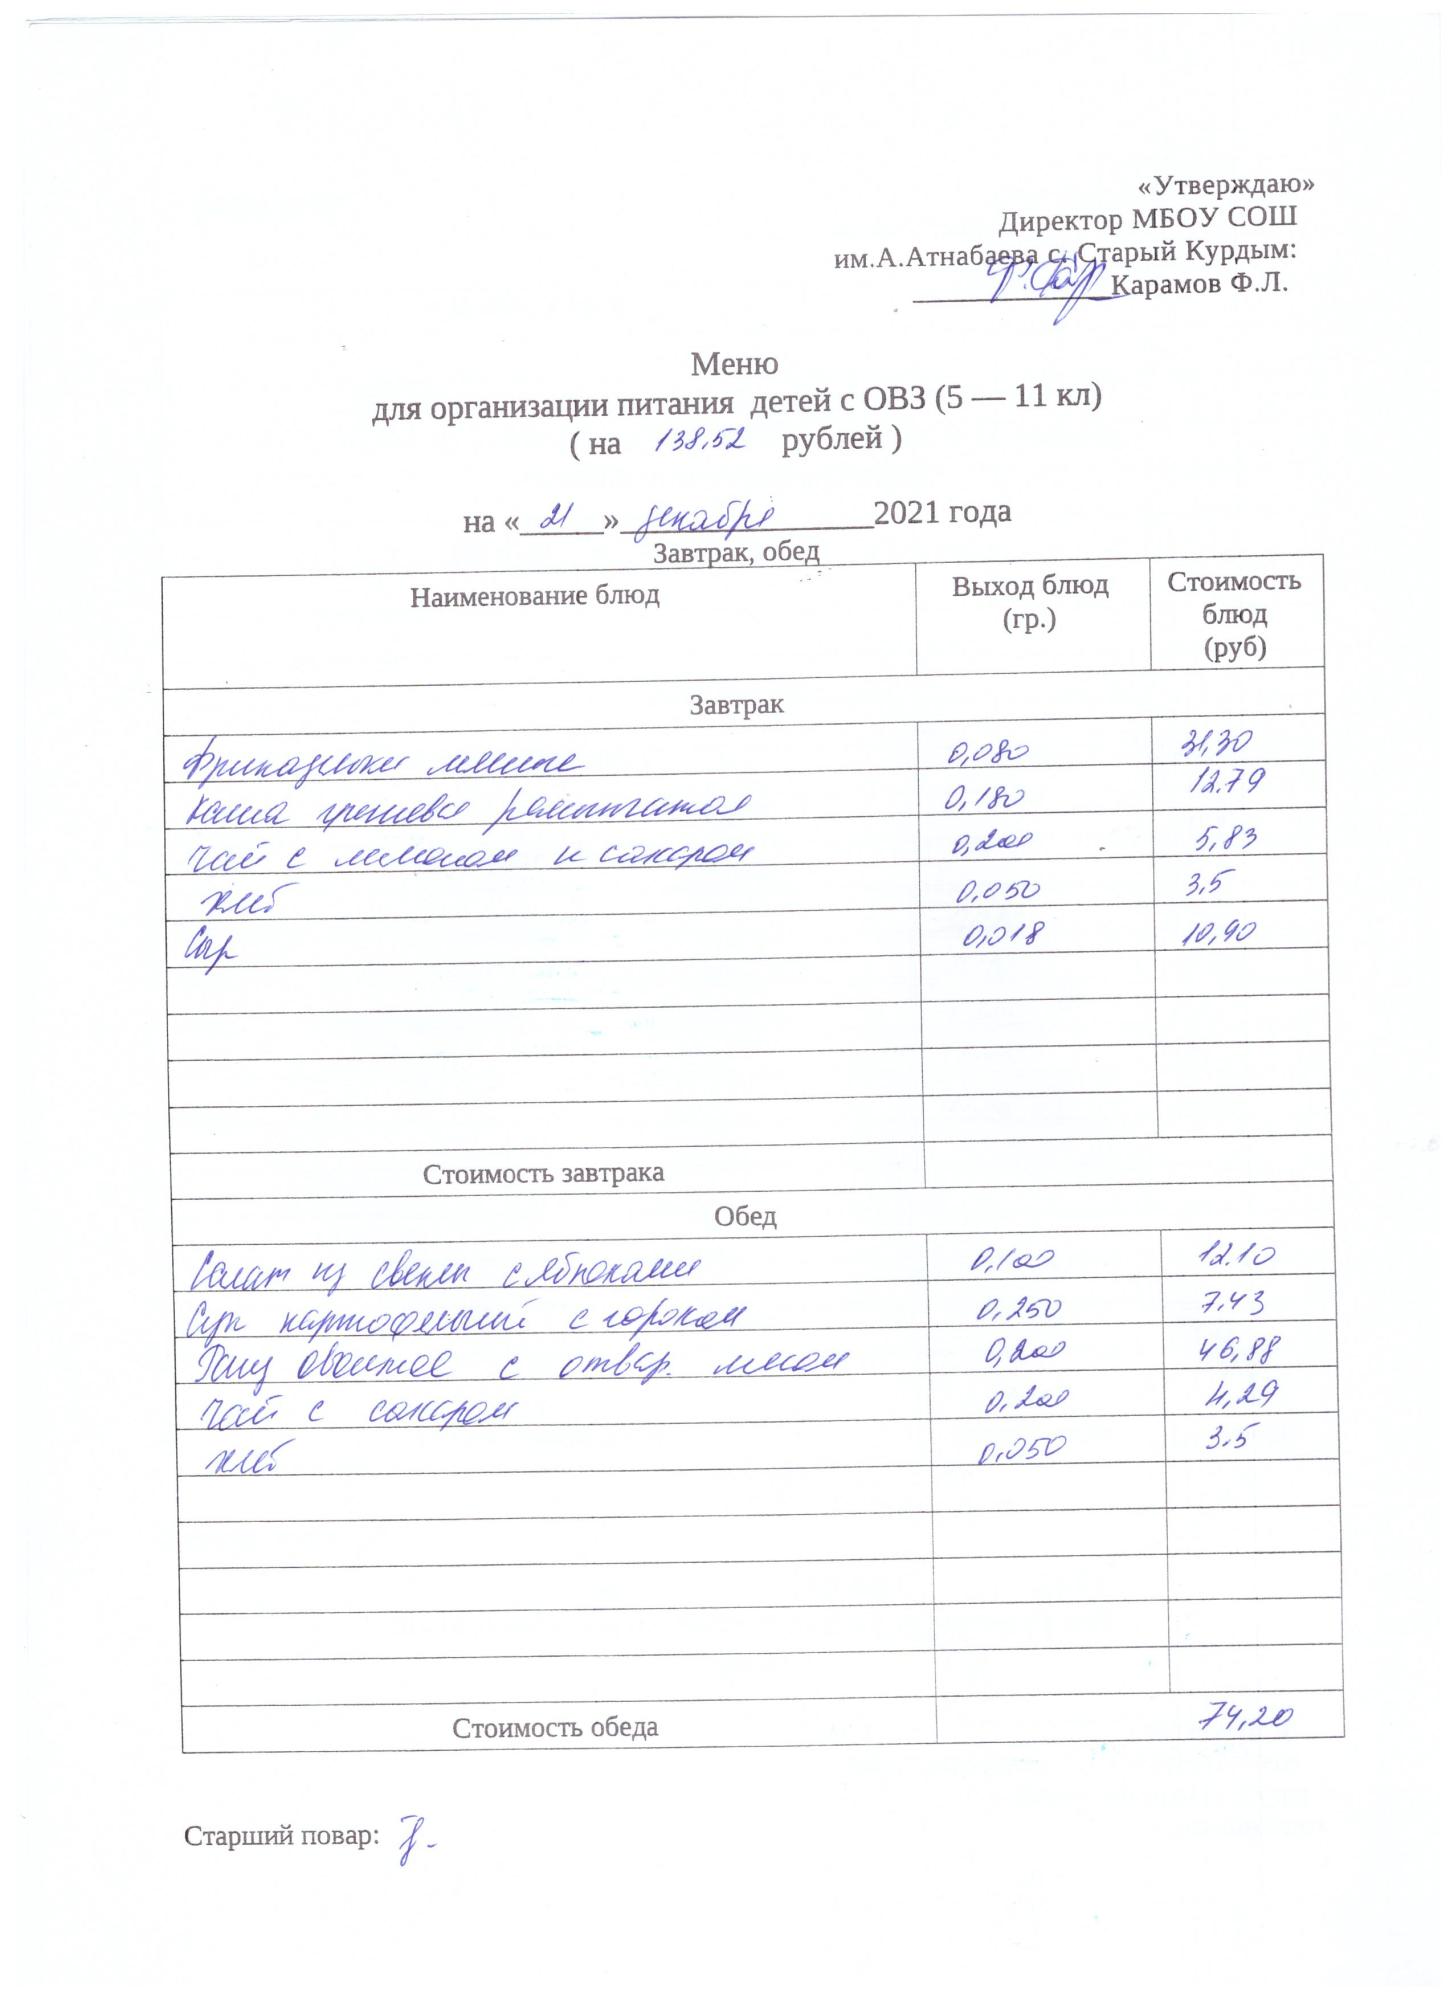 «Утверждаю»
Директор МБОУ СОШ
им.А.Атнабаева с. Старый Курдым:
Карамов Ф.Л.
Меню
для организации питания детей с ОВЗ (5 — 11 кл)
( на 138,52 рублей )
на « 21 » декабря 2021 года
Завтрак, обед
Наименование блюд Выход блюд (гр.) Стоимость блюд (руб)
Завтрак
Фрикадельки мясные 0,080 31,30
Каша гречневая рассыпчатая 0,180 12.79
Чай с лимоном и сахаром 0,200 5,83
Хлеб 0,050 3,5
Сыр 0,018 10,90
Стоимость завтрака
Обед
Салат из свеклы с яблоками 0,100 12.10
Суп картофельный с горохом 0,250 7.43
Рагу овощное с отвар. мясом 0,200 46,88
Чай с сахаром 0,200 4,29
Хлеб 0,050 3.5
Стоимость обеда 74,20
Старший повар: